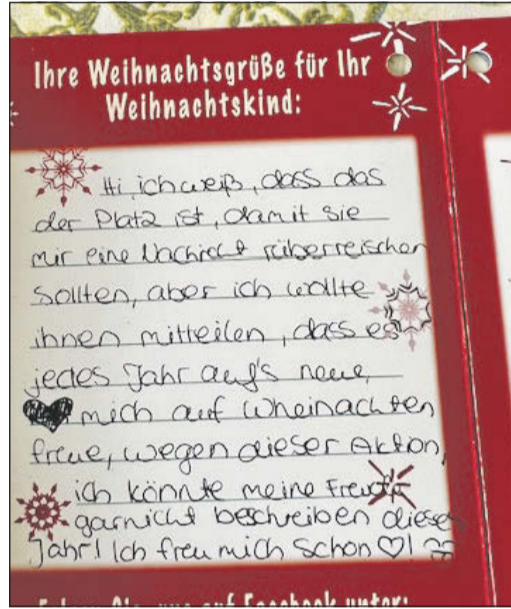 Ihre Weihnachtsgrüße für Ihr
Weihnachtskind:
Hi, ich weiß, dass das
der Platz ist, damit sie
mir eine Nachricht rüberreischen
sollten, aber ich wollte
ihnen mitteilen, dass es
jedes Jahr auf's neue,
mich auf Wheinachten
freue, wegen dieser Aktion,
ich könnte meine Freude
garnicht beschreiben dieses
Jahr! Ich freu mich schon ♡!
auf Facebook unter: